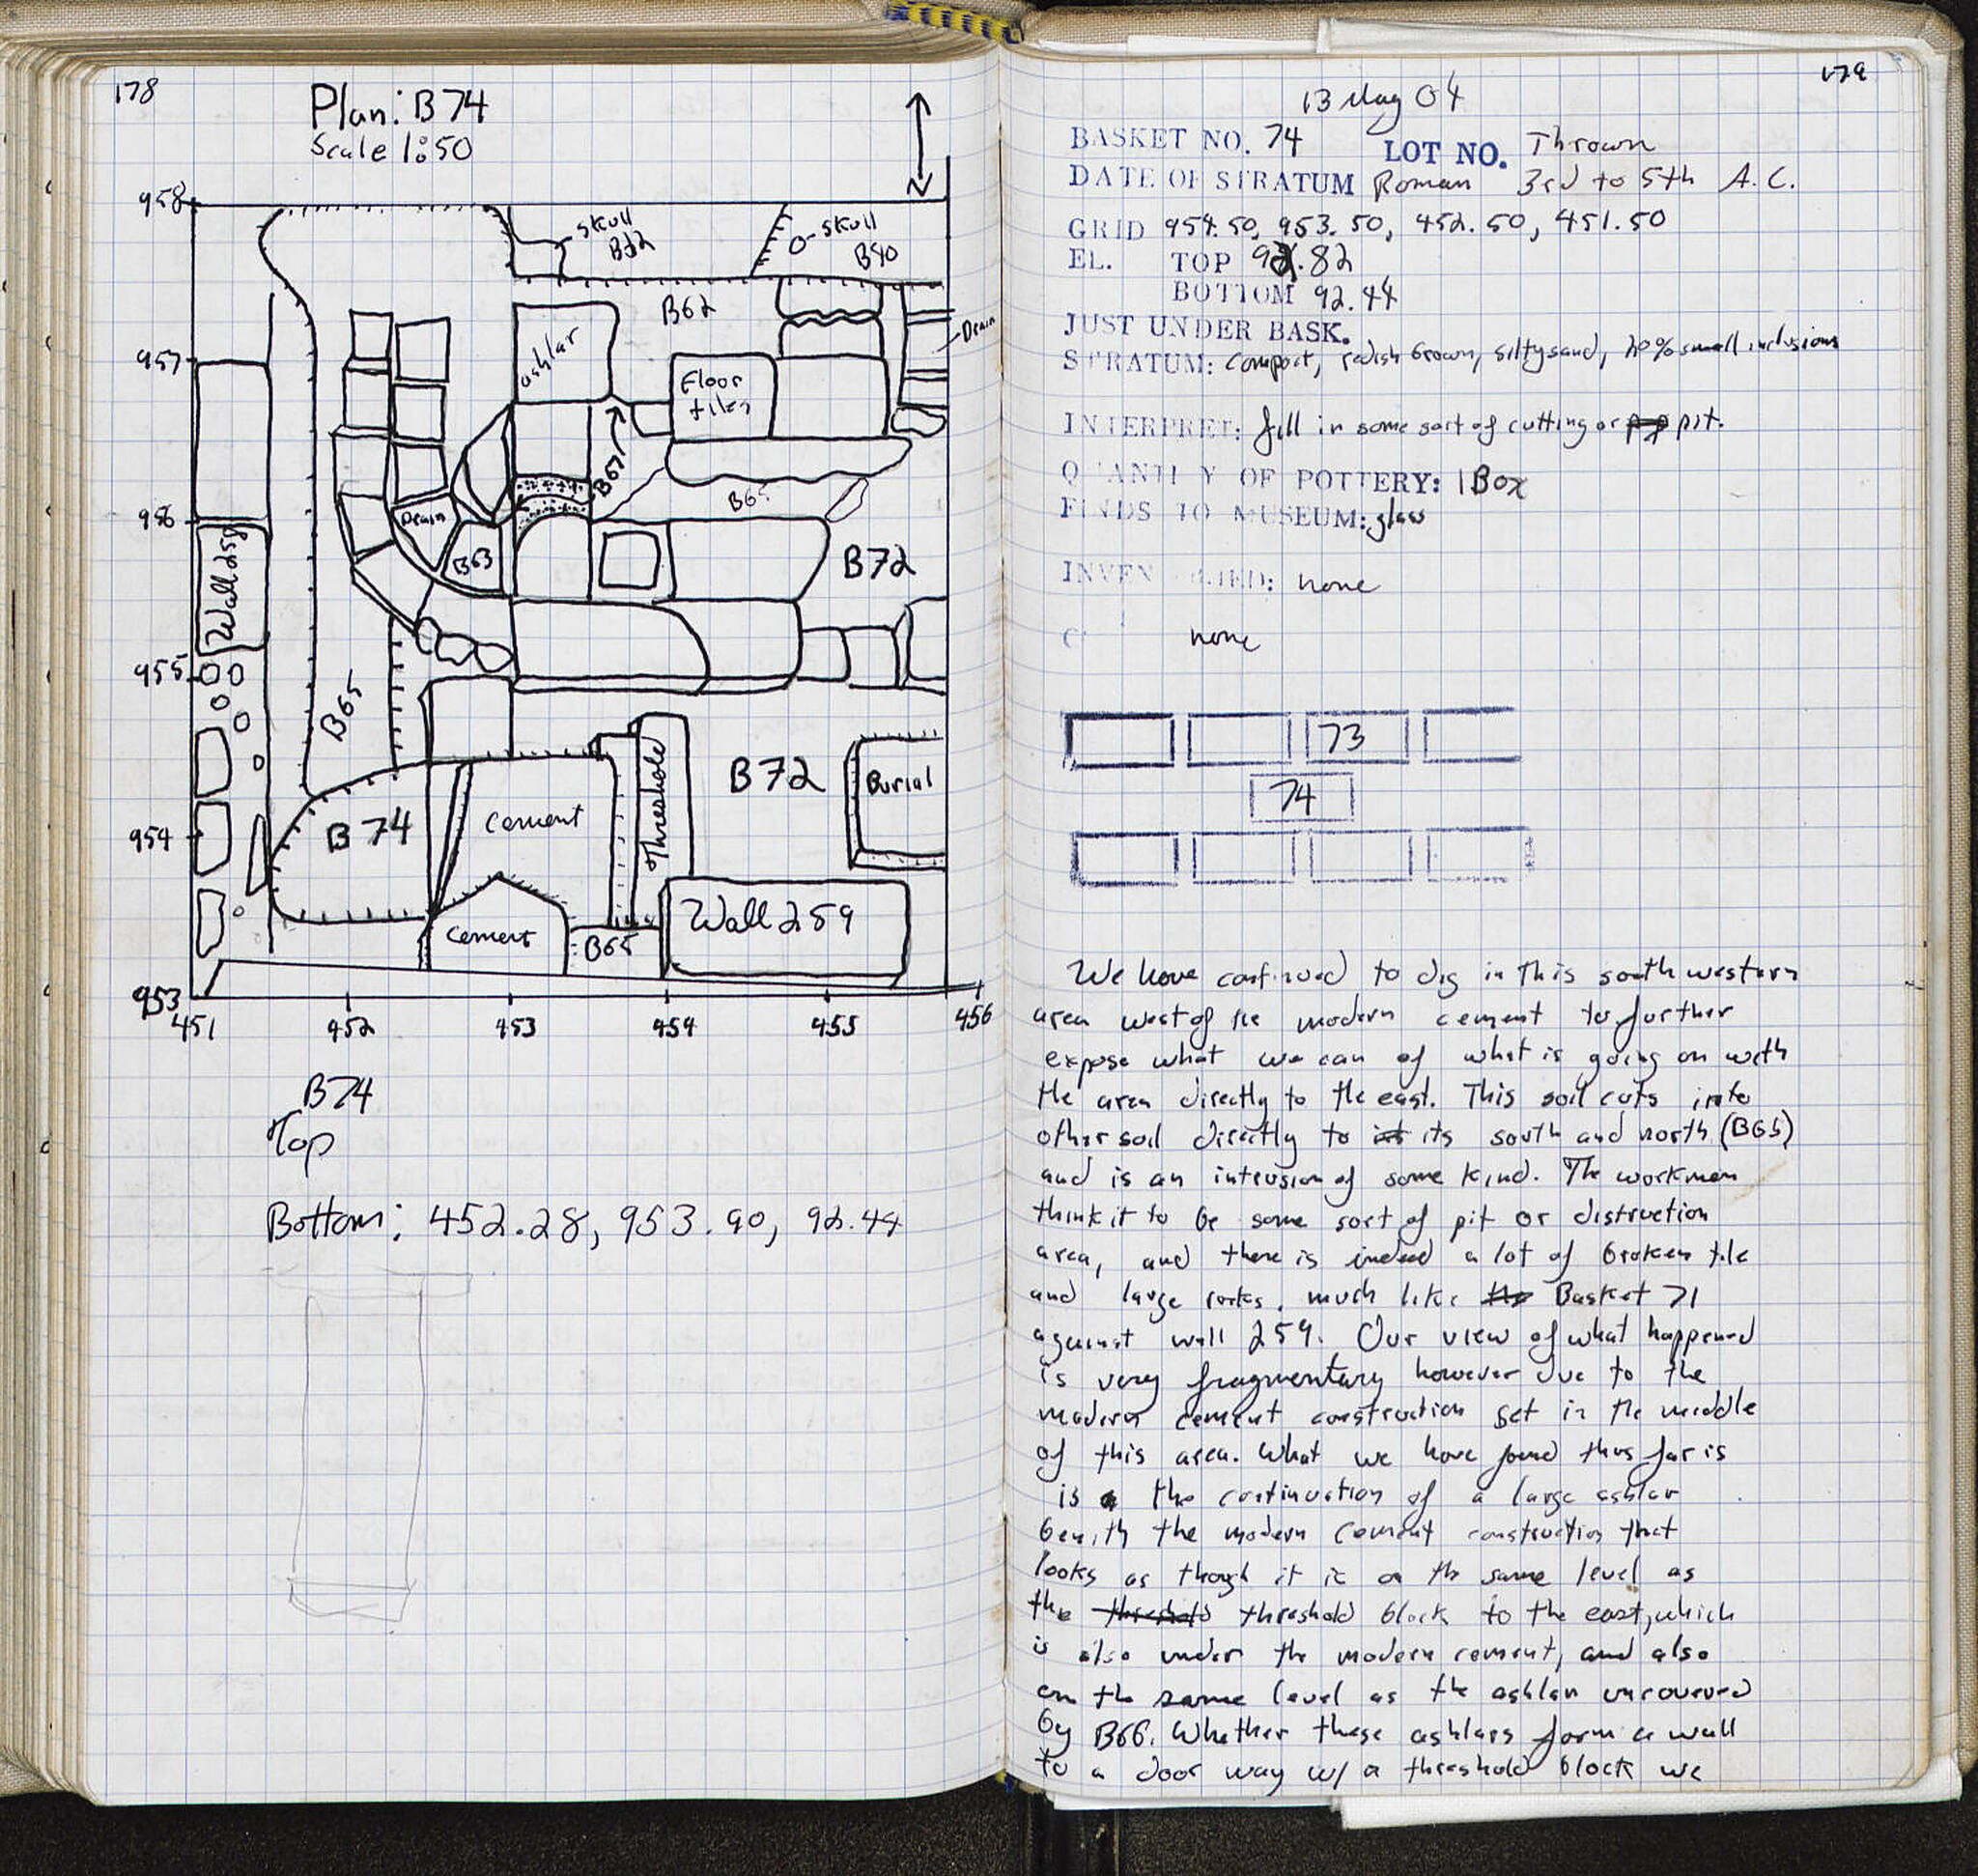 178
Plan: B74
Scale 1:50
N
958
957
956
955
954
953
451
452
453
454
455
456
skull
skull
B40
B62
Drain
ashlar
Floor
tiles
B67
Drain
B63
B72
Wall 258
B65
B74
Cement
Threshold
B72
Burial
Cement
B65
Wall 259
B74
Top
Bottom: 452.28, 953.90, 92.44
179
13 May 04
BASKET NO. 74 LOT NO. Thrown
DATE OF STRATUM Roman 3rd to 5th A.C.
GRID 954.50, 953.50, 452.50, 451.50
EL. TOP 92.82
BOTTOM 92.44
JUST UNDER BASK.
STRATUM: compact, redish brown, silty sand, 20% small inclusions
INTERPRET: fill in some sort of cutting or pit.
QUANTITY OF POTTERY: 1 Box
FINDS TO MUSEUM: glass
INVENTORIED: none
C none
73
74
We have continued to dig in this south western
area west of the modern cement to further
expose what we can of what is going on with
the area directly to the east. This soil cuts into
other soil directly to its south and north (B65)
and is an intrusion of some kind. The workmen
think it to be some sort of pit or distruction
area, and there is indeed a lot of broken tile
and large rocks, much like Basket 71
against wall 259. Our view of what happened
is very fragmentary however due to the
modern cement construction set in the middle
of this area. What we have found thus far is
is the continuation of a large ashlar
benith the modern cement construction that
looks as though it is on the same level as
the threshold threshold block to the east, which
is also under the modern cement, and also
on the same level as the ashlar uncovered
by B66. Whether these ashlars form a wall
to a door way w/ a threshold block we